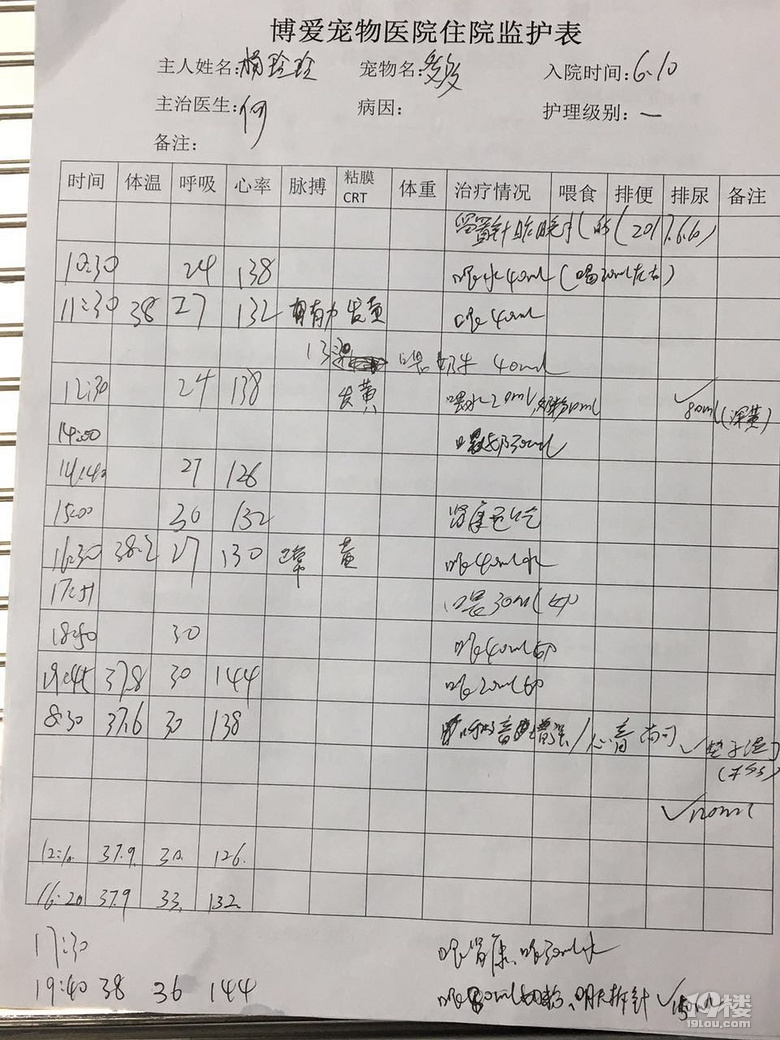 博爱宠物医院住院监护表
主人姓名:杨玲玲 宠物名:多多 入院时间:6.10
主治医生:何 病因: 护理级别:一
备注:
时间 体温 呼吸 心率 脉搏 粘膜CRT 体重 治疗情况 喂食 排便 排尿 备注
留置针 (2017.6.10)
10:30 24 138 喂水40ml(喝30ml左右)
11:30 38 27 132 有力 发黄 喂40ml
喂奶 40ml
12:30 24 138 发黄 喂水20ml,奶粉10ml ✓80ml(深黄)
14:00 喂奶30ml
14:40 27 126
15:00 30 132 肾康
16:30 38.2 27 130 正常 黄 喂40ml水
17:51 喂30ml奶
18:50 30 喂40ml奶
19:45 37.8 30 144 喂20ml奶
8:30 37.6 30 138 呼吸音增强/心音尚可 ✓垫子湿了
✓120ml
12:10 37.9 30 126
16:20 37.9 33 132
17:30 喂肾康、喂30ml水
19:40 38 36 144 奶粉、明天拆针 ✓
19楼
19lou.com